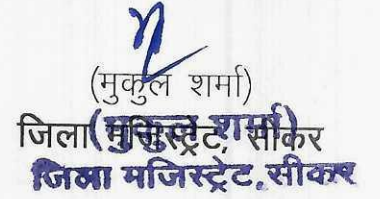 (मुकुल शर्मा)
जिला मजिस्ट्रेट, सीकर
(मुकुल शर्मा)
जिला मजिस्ट्रेट, सीकर